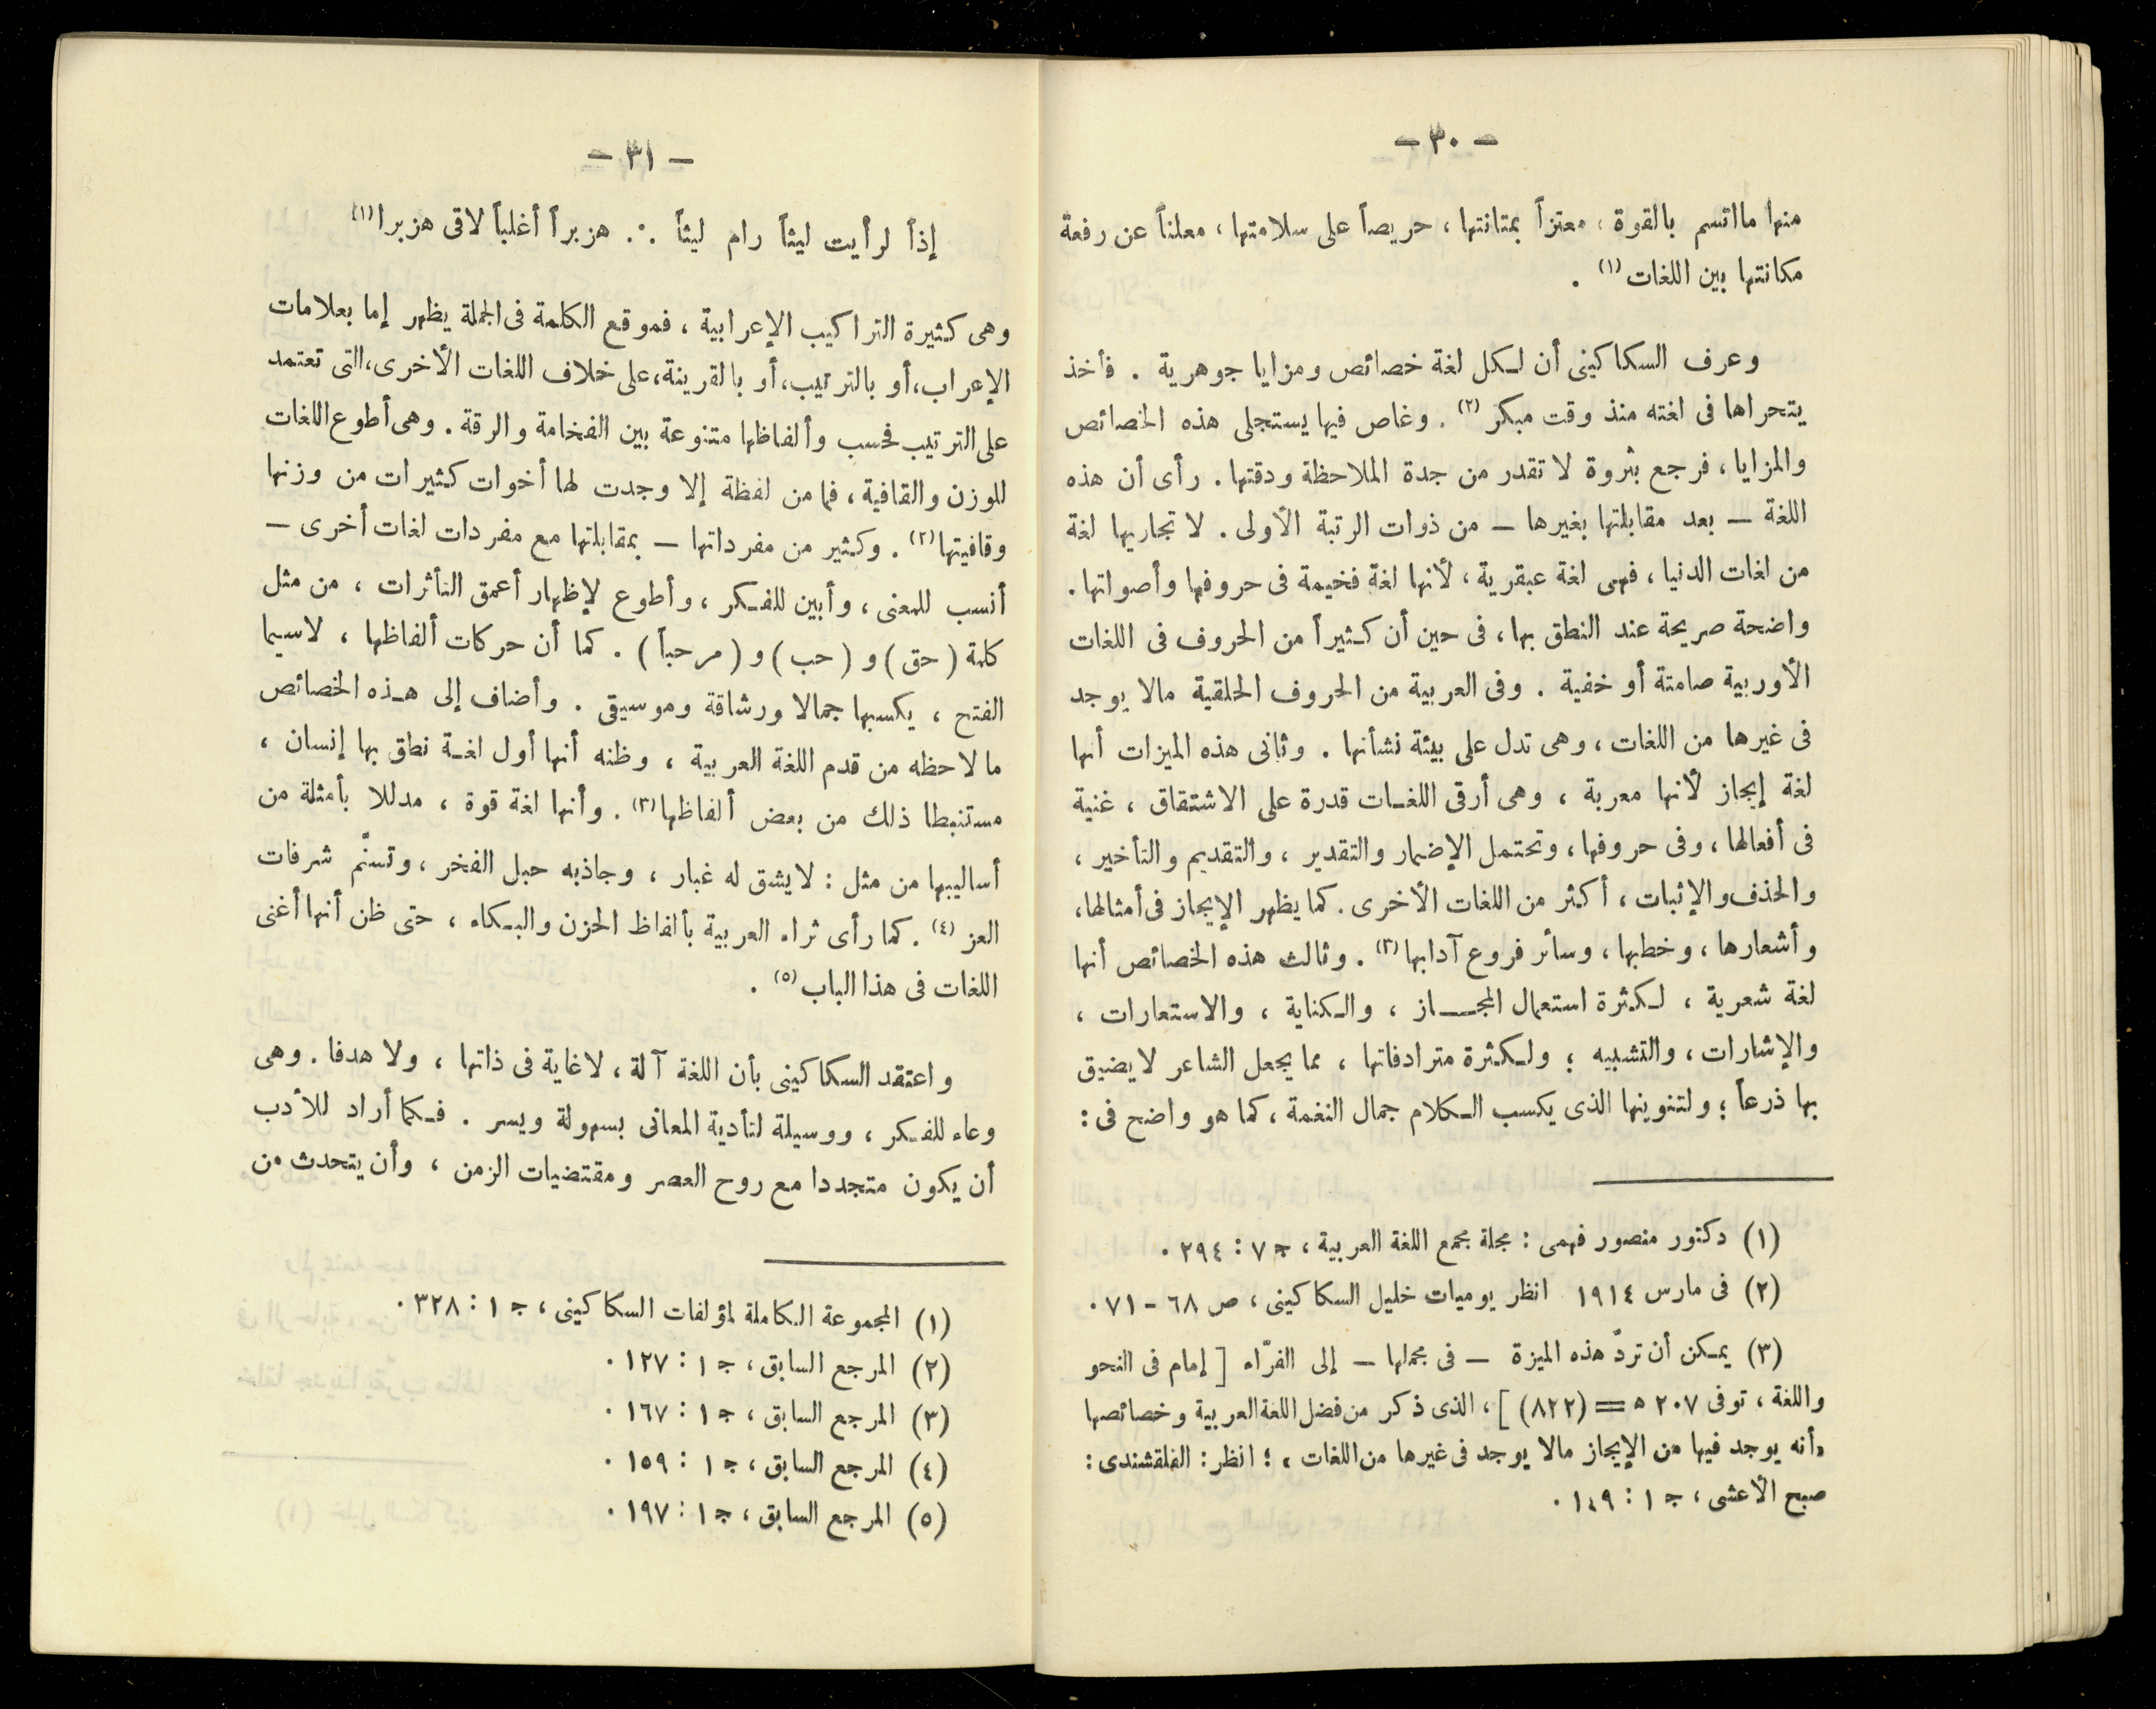 - ٣٠ -
منها ما اتسم بالقوة ، معتزاً بمتانتها ، حريصاً على سلامتها ، معلناً عن رفعة
مكانتها بين اللغات (١) .
وعرف السكاكينى أن لكل لغة خصائص ومزايا جوهرية . فأخذ
يتحراها فى لغته منذ وقت مبكر (٢) . وغاص فيها يستجلى هذه الخصائص
والمزايا ، فرجع بثروة لا تقدر من جدة الملاحظة ودقتها . رأى أن هذه
اللغة — بعد مقابلتها بغيرها — من ذوات الرتبة الأولى . لا تجاريها لغة
من لغات الدنيا ، فهى لغة عبقرية ، لأنها لغة فخيمة فى حروفها وأصواتها .
واضحة صريحة عند النطق بها ، فى حين أن كثيراً من الحروف فى اللغات
الأوربية صامتة أو خفية . وفى العربية من الحروف الحلقية مالا يوجد
فى غيرها من اللغات ، وهى تدل على بيئة نشأتها . وثانى هذه الميزات أنها
لغة إيجاز لأنها معربة ، وهى أرقى اللغات قدرة على الاشتقاق ، غنية
فى أفعالها ، وفى حروفها ، وتحتمل الإضمار والتقدير ، والتقديم والتأخير ،
والحذف والإثبات ، أكثر من اللغات الأخرى . كما يظهر الإيجاز فى أمثالها ،
وأشعارها ، وخطبها ، وسائر فروع آدابها (٣) . وثالث هذه الخصائص أنها
لغة شعرية ، لكثرة استعمال المجاز ، والكناية ، والاستعارات ،
والإشارات ، والتشبيه ؛ ولكثرة مترادفاتها ، مما يجعل الشاعر لا يضيق
بها ذرعاً ؛ ولتنوينها الذى يكسب الكلام جمال النغمة ، كما هو واضح فى :
(١) دكتور منصور فهمى : مجلة مجمع اللغة العربية ، ج ٧ : ٢٩٤ .
(٢) فى مارس ١٩١٤ انظر يوميات خليل السكاكينى ، ص ٦٨ - ٧١ .
(٣) يمكن أن تردّ هذه الميزة — فى مجملها — إلى الفرّاء [ إمام فى النحو
واللغة ، توفى ٢٠٧ ه = (٨٢٢) ] ، الذى ذكر من فضل اللغة العربية وخصائصها
« أنه يوجد فيها من الإيجاز مالا يوجد فى غيرها من اللغات » ؛ انظر : القلقشندى :
صبح الأعشى ، ج ١ : ١٤٩ .
- ٣١ -
إذاً لرأيت ليثاً رام ليثاً ∴ هزبراً أغلباً لاقى هزبرا (١)
وهى كثيرة التراكيب الإعرابية ، فموقع الكلمة فى الجملة يظهر إما بعلامات
الإعراب ، أو بالترتيب ، أو بالقرينة ، على خلاف اللغات الأخرى ، التى تعتمد
على الترتيب فحسب وألفاظها متنوعة بين الفخامة والرقة . وهى أطوع اللغات
للوزن والقافية ، فما من لفظة إلا وجدت لها أخوات كثيرات من وزنها
وقافيتها (٢) . وكثير من مفرداتها — بمقابلتها مع مفردات لغات أخرى —
أنسب للمعنى ، وأبين للفكر ، وأطوع لإظهار أعمق التأثرات ، من مثل
كلمة ( حق ) و ( حب ) و ( مرحباً ) . كما أن حركات ألفاظها ، لاسيما
الفتح ، يكسبها جمالا ورشاقة وموسيقى . وأضاف إلى هذه الخصائص
ما لاحظه من قدم اللغة العربية ، وظنه أنها أول لغة نطق بها إنسان ،
مستنبطا ذلك من بعض ألفاظها (٣) . وأنها لغة قوة ، مدللا بأمثلة من
أساليبها من مثل : لا يشق له غبار ، وجاذبه حبل الفخر ، وتسنّم شرفات
العز (٤) . كما رأى ثراء العربية بألفاظ الحزن والبكاء ، حتى ظن أنها أغنى
اللغات فى هذا الباب (٥) .
واعتقد السكاكينى بأن اللغة آلة ، لا غاية فى ذاتها ، ولا هدفا . وهى
وعاء للفكر ، ووسيلة لتأدية المعانى بسهولة ويسر . فكما أراد للأدب
أن يكون متجددا مع روح العصر ومقتضيات الزمن ، وأن يتحدث من
(١) المجموعة الكاملة لمؤلفات السكاكينى ، ج ١ : ٣٢٨ .
(٢) المرجع السابق ، ج ١ : ١٢٧ .
(٣) المرجع السابق ، ج ١ : ١٦٧ .
(٤) المرجع السابق ، ج ١ : ١٥٩ .
(٥) المرجع السابق ، ج ١ : ١٩٧ .